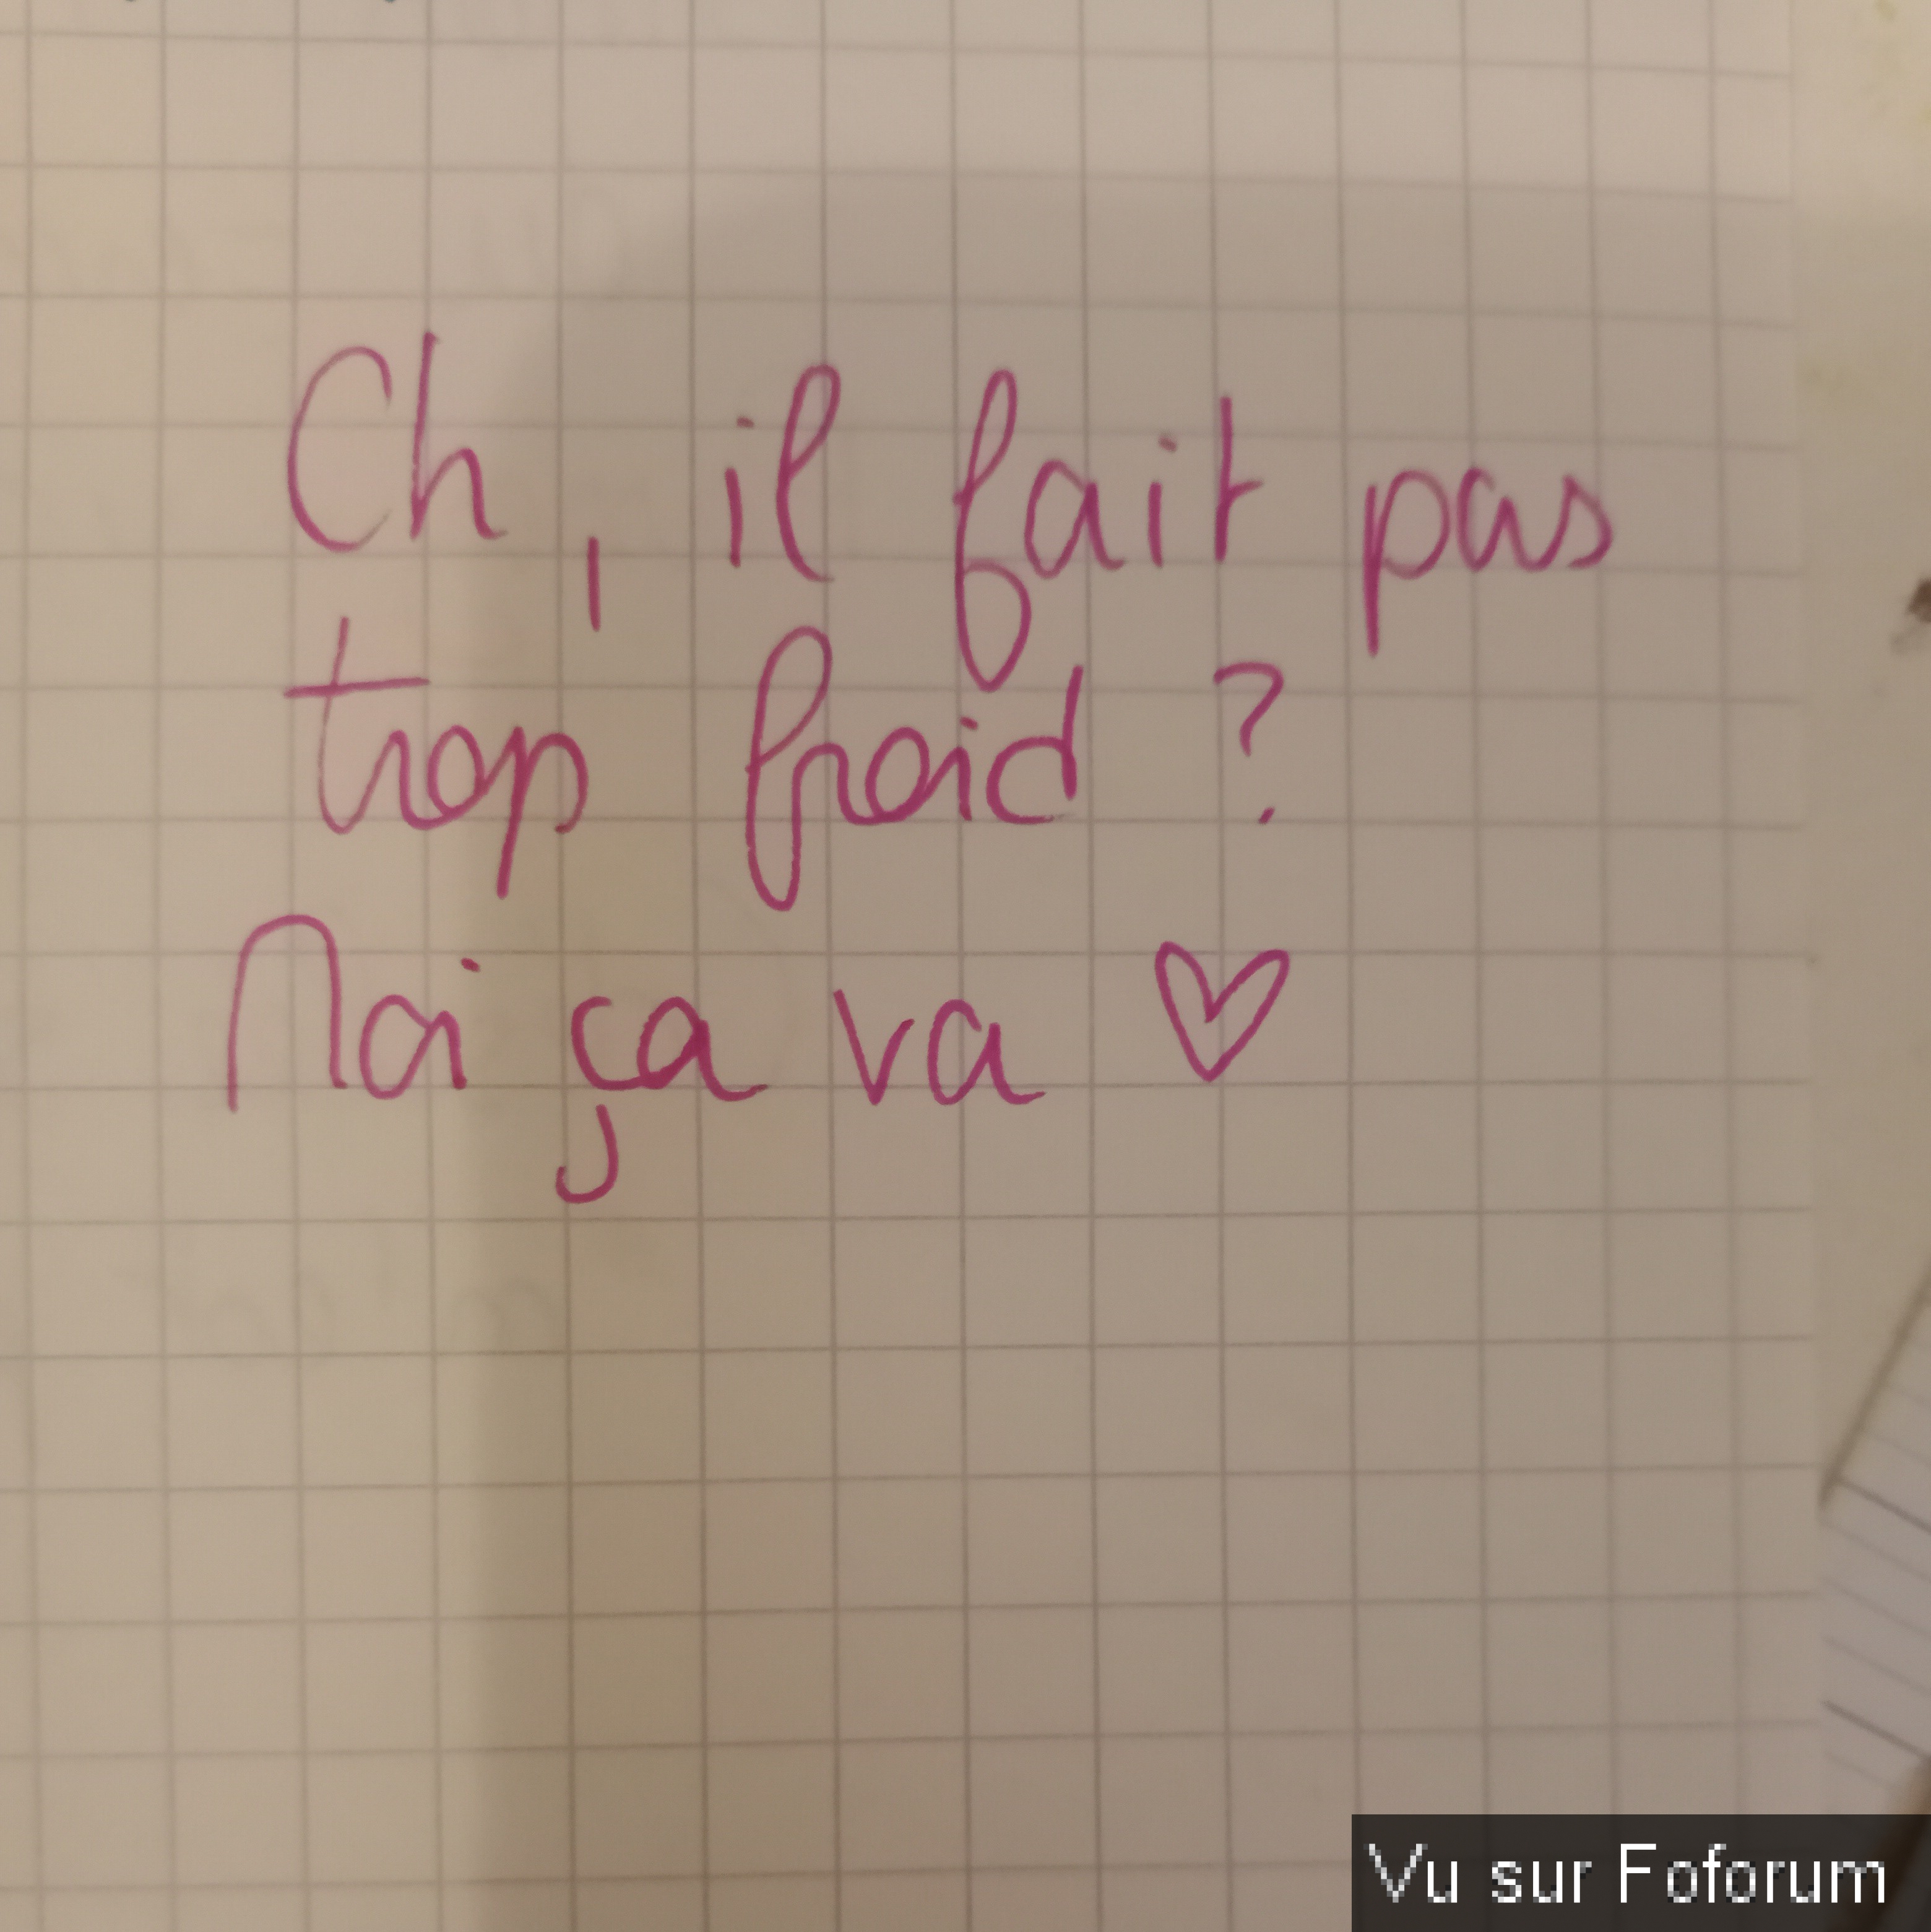 Ch, il fait pas
trop froid ?
Moi ça va ♡
Vu sur Foforum